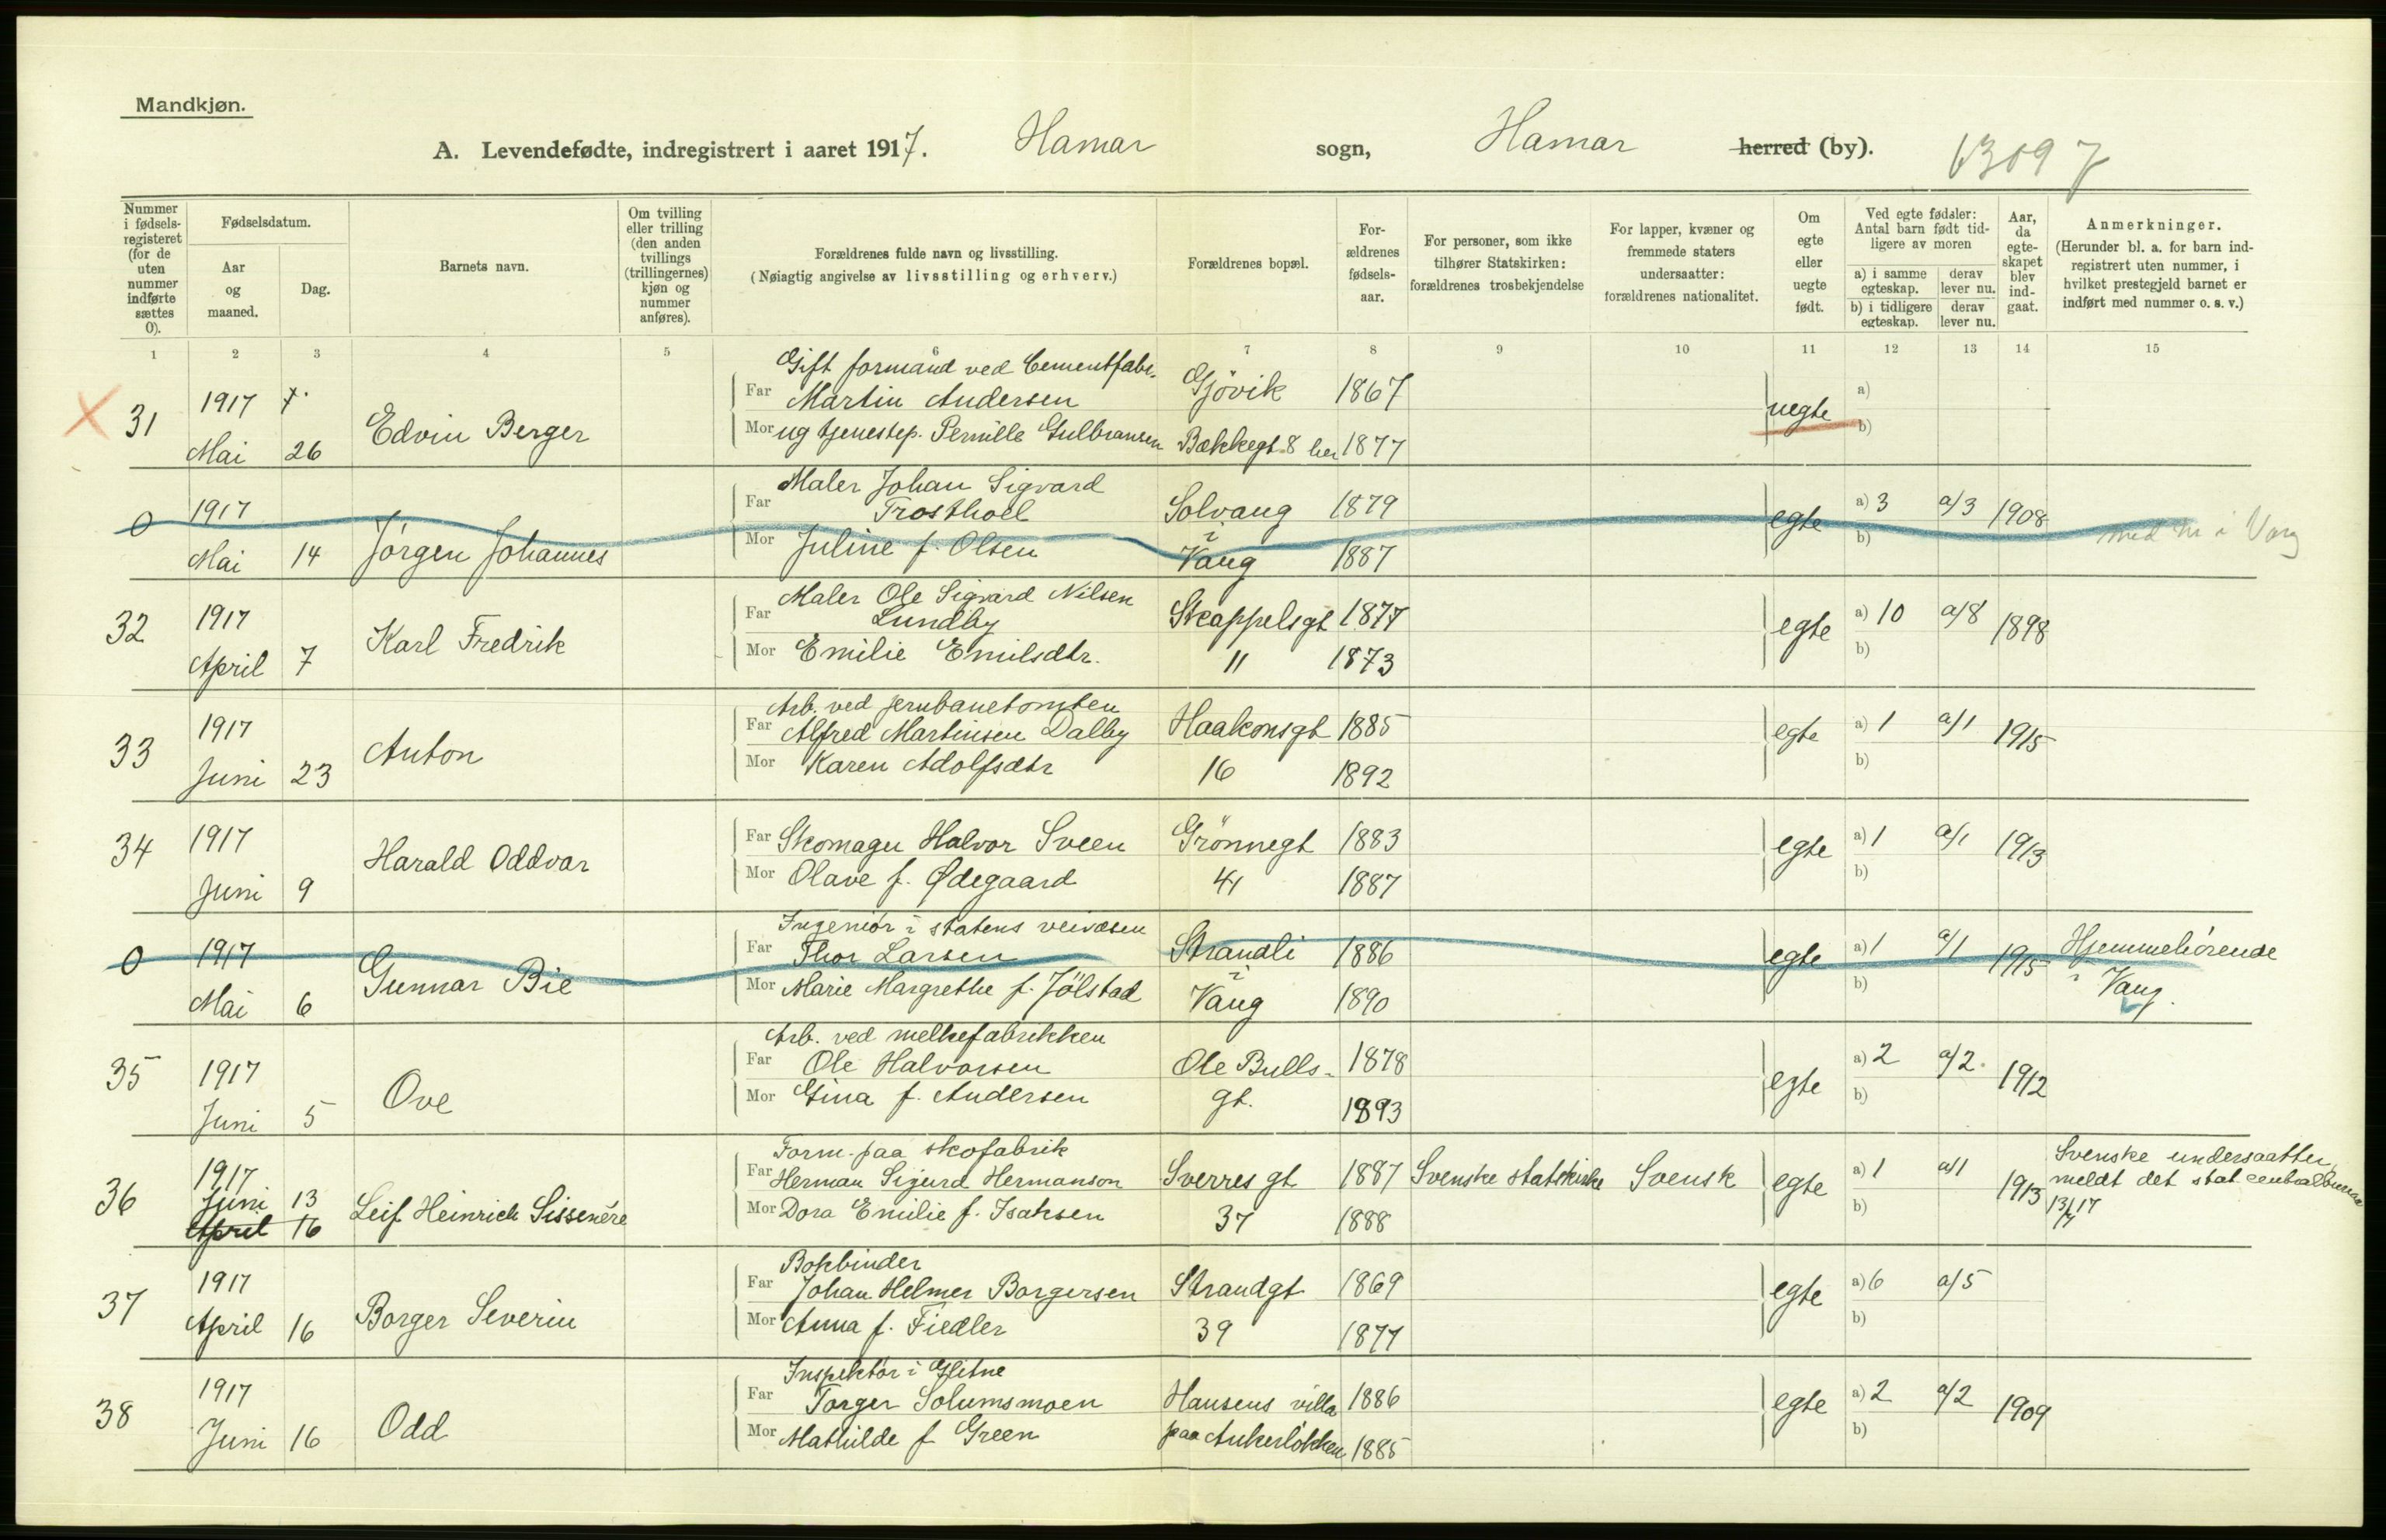 Mandkjøn.
A. Levendefødte, indregistrert i aaret 1917. Hamar sogn, Hamar herred (by). 13097
Nummer i fødsels-registeret (for de uten nummer indførte sættes 0).
Fødselsdatum.
Aar og maaned.
Dag.
Barnets navn.
Om tvilling eller trilling (den anden tvillings (trillingernes) kjøn og nummer anføres).
Forældrenes fulde navn og livsstilling.
(Nøiagtig angivelse av livsstilling og erhverv.)
Forældrenes bopæl.
For-ældrenes fødsels-aar.
For personer, som ikke tilhører Statskirken: forældrenes trosbekjendelse
For lapper, kvæner og fremmede staters undersaatter: forældrenes nationalitet.
Om egte eller uegte født.
Ved egte fødsler: Antal barn født tid-ligere av moren
a) i samme egteskap. derav lever nu.
b) i tidligere egteskap. derav lever nu.
Aar, da egte-skapet blev ind-gaat.
Anmerkninger.
(Herunder bl. a. for barn ind-registrert uten nummer, i hvilket prestegjeld barnet er indført med nummer o. s. v.)
1 2 3 4 5 6 7 8 9 10 11 12 13 14 15
Gift formand ved Cementfabr.
31 1917 Far Martin Andersen Gjövik 1867 uegte a)
Mai 26 Edvin Berger Mor ug tjenestep. Pernille Gulbransen Bækkegt 8 her 1877 b)
Maler Johan Sigvard
0 1917 Far Trosthoel Solvang 1879 egte a) 3 a/3 1908 med nr i Vang
Mai 14 Jörgen Johannes Mor Juline f. Olsen i Vang 1887 b)
Maler Ole Sigvard Nilsen
32 1917 Far Lundby Skappelsgt 1877 egte a) 10 a/8 1898
April 7 Karl Fredrik Mor Emilie Emilsdtr. 11 1873 b)
Arb. ved jernbanetomten
33 1917 Far Alfred Martinsen Dalby Haakonsgt 1885 egte a) 1 a/1 1915
Juni 23 Anton Mor Karen Adolfsdtr 16 1892 b)
34 1917 Far Skomager Halvor Sveen Grönnegt 1883 egte a) 1 a/1 1913
Juni 9 Harald Oddvar Mor Olave f. Ødegaard 41 1887 b)
Ingeniör i statens veivæsen
0 1917 Far Thor Larsen Strandli 1886 egte a) 1 a/1 1915 Hjemmehörende
Mai 6 Gunnar Bie Mor Marie Margrethe f. Jölstad i Vang 1890 b) i Vang.
Arb. ved melkefabrikken
35 1917 Far Ole Halvorsen Ole Bulls- 1878 egte a) 2 a/2 1912
Juni 5 Ove Mor Gina f. Andersen gt. 1893 b)
Form. paa skofabrik
36 1917 Far Herman Sigurd Hermanson Sverres gt 1887 Svenske statskirke Svensk egte a) 1 a/1 1913 Svenske undersaatter,
Juni 13 Leif Heinrich Sissenére Mor Dora Emilie f. Isaksen 37 1888 b) meldt det stat centralbureau
April 16 13/7 17
Bokbinder
37 1917 Far Johan Helmer Borgersen Strandgt 1869 egte a) 6 a/5
April 16 Borger Severin Mor Anna f. Fiedler 39 1877 b)
Inspektör i Glitne
38 1917 Far Torger Solumsmoen Hansens villa 1886 egte a) 2 a/2 1909
Juni 16 Odd Mor Mathilde f Green paa Ankerlökken 1885 b)